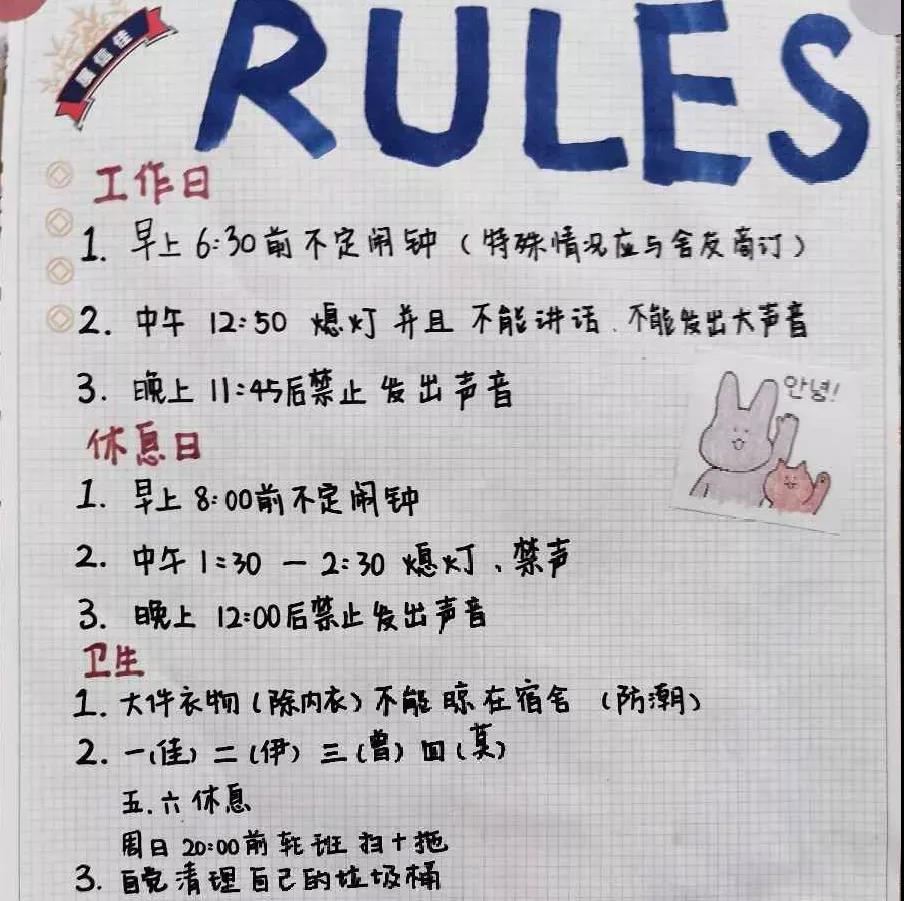 RULES
工作日
1. 早上 6:30 前不定闹钟（特殊情况应与舍友商订）
2. 中午 12:50 熄灯 并且 不能讲话．不能发出大声音
3. 晚上 11:45后禁止 发出声音
안녕!
休息日
1. 早上 8:00前不定闹钟
2. 中午 1:30 — 2:30 熄灯、禁声
3. 晚上 12:00后禁止发出声音
卫生
1. 大件衣物（除内衣）不能 晾在宿舍 （防潮）
2. 一（佳）二（伊）三（曾）四（莫）
五．六 休息
周日 20:00前 轮班 扫+拖
3. 自觉清理自己的垃圾桶